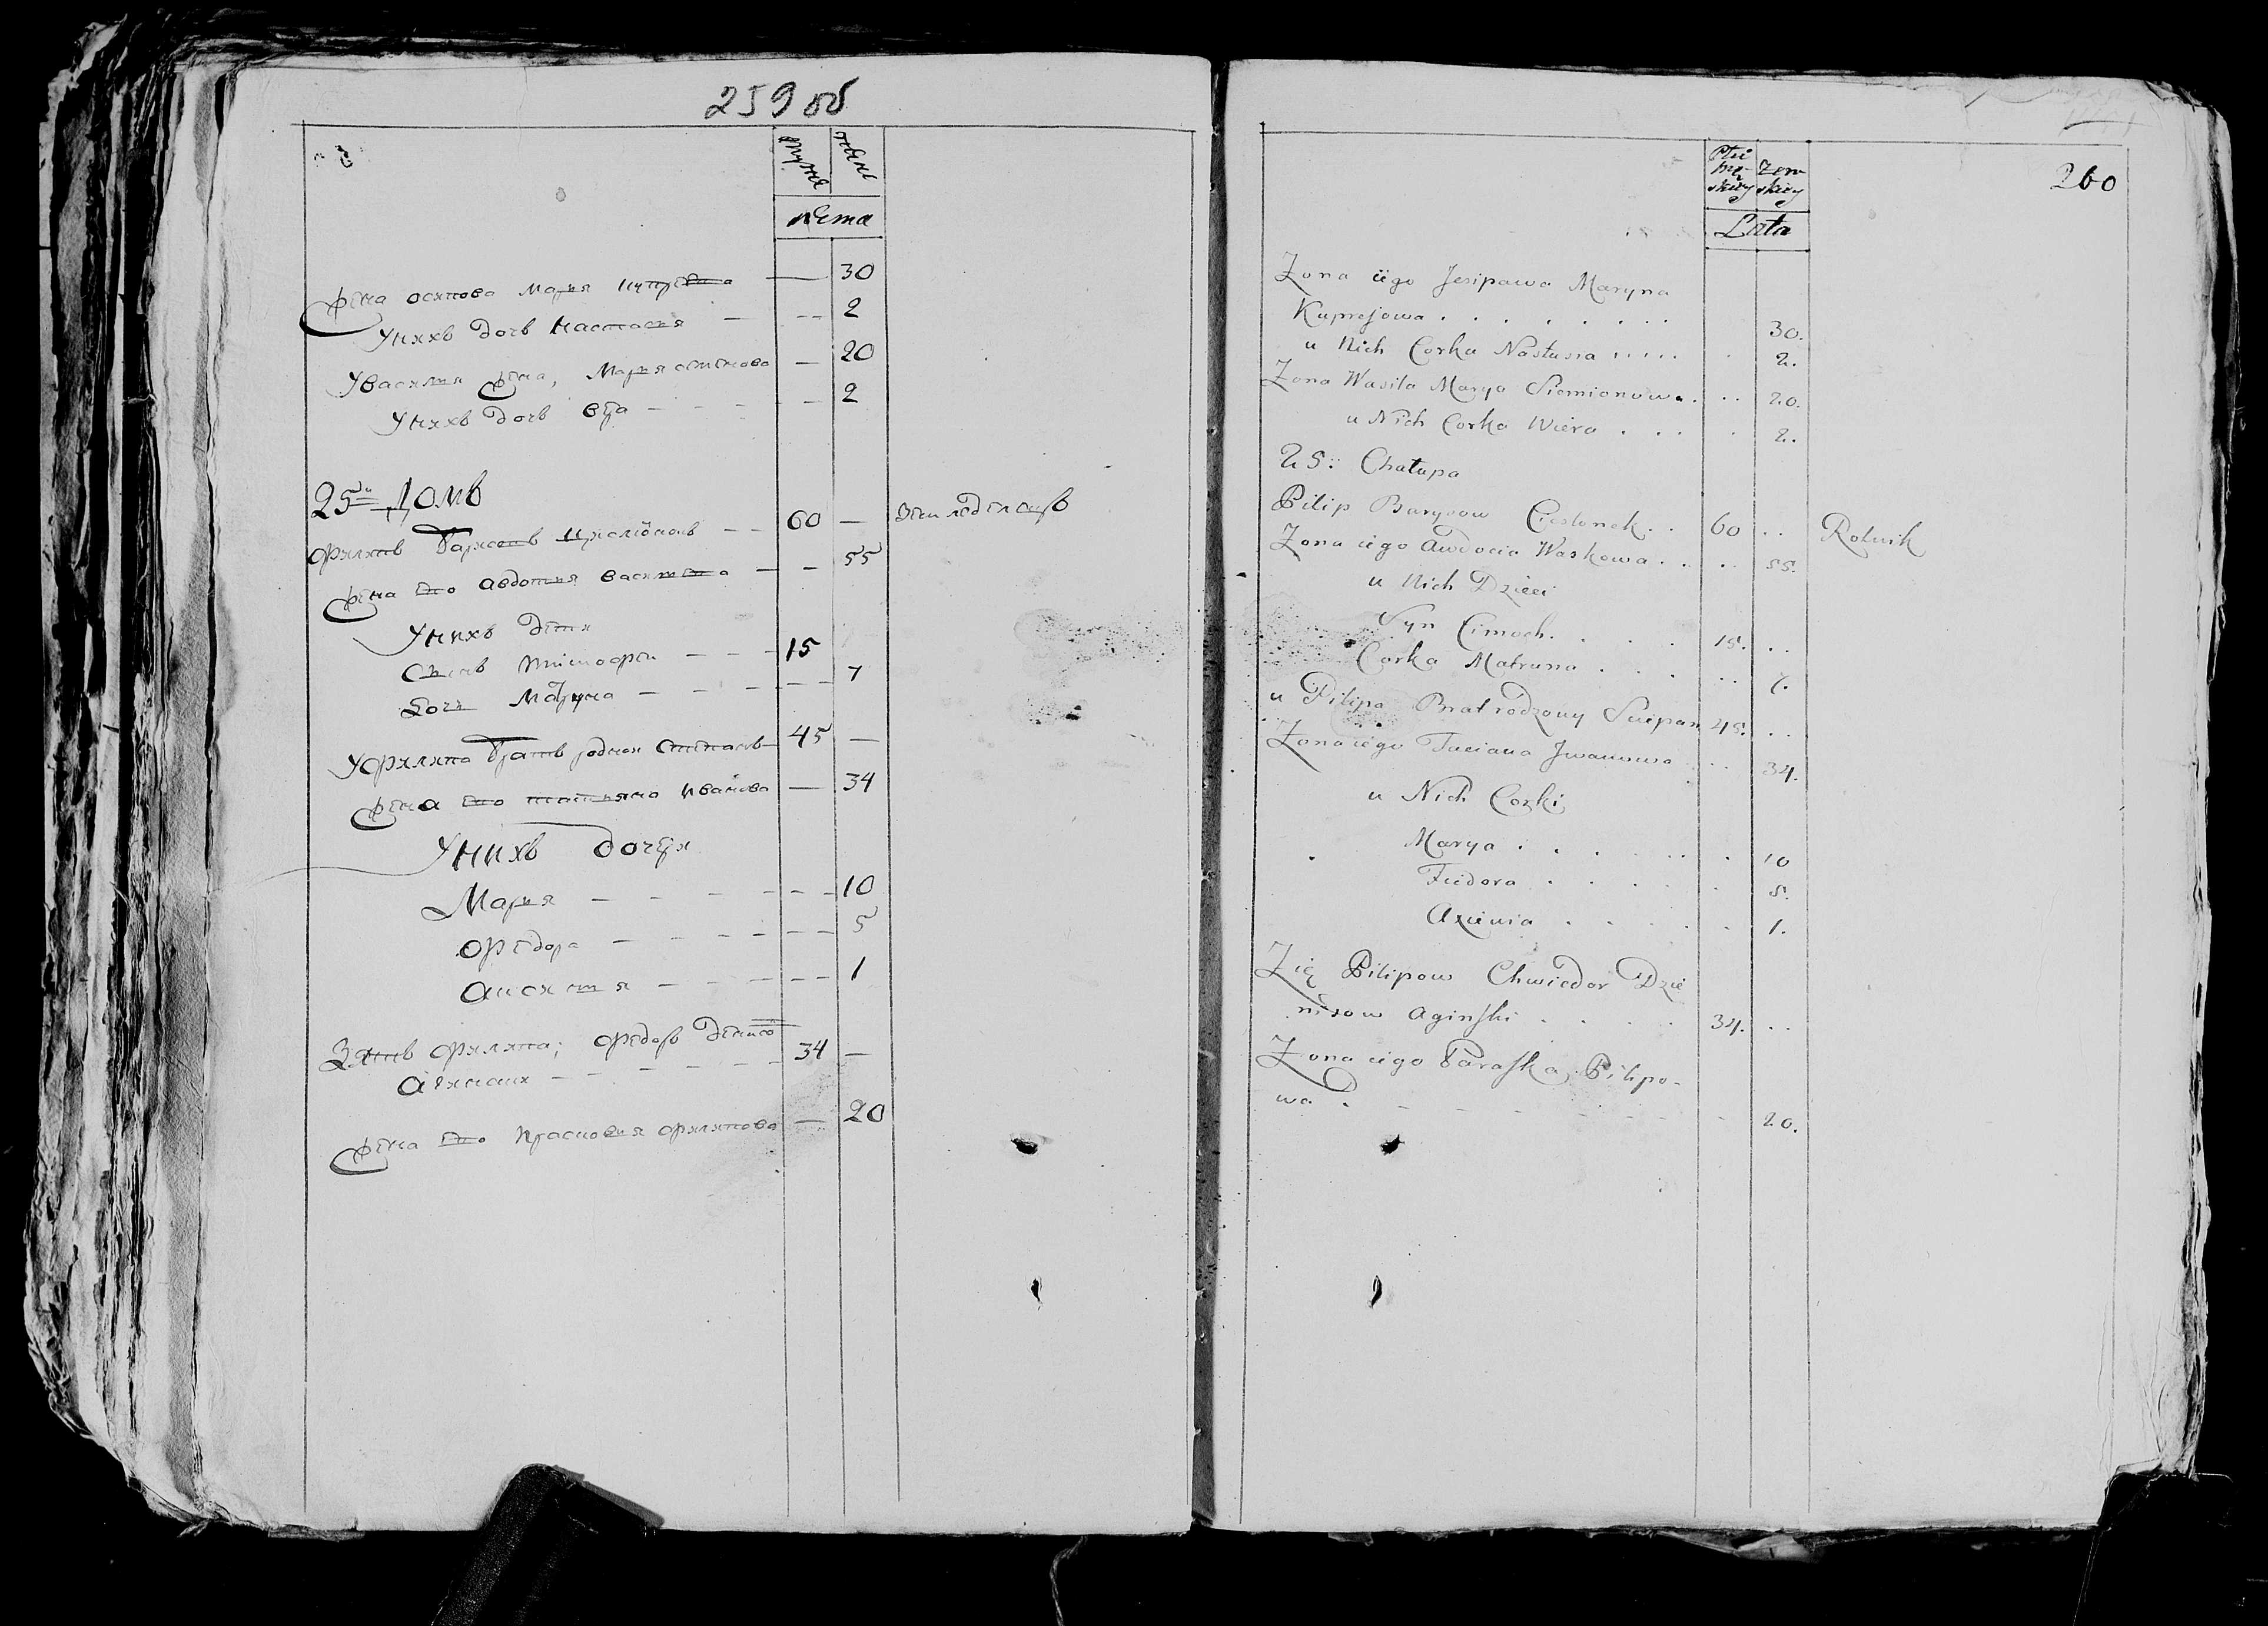 259 об
мужс женс
лѣта
Жена осипова Маря купрѣева — 30
У нихъ дочь Настася — 2
У василя жена, Маря семенова — 20
У нихъ дочь Вѣра — 2
25й Домъ
Филипъ Барисовъ — — 60 — Земледелецъ
Жена Его Авдотия Василева — 55
У нихъ дети
Сынъ Тимофеи — — — 15
Дочь Матруна — — — 7
У Филипа братъ родной Степанъ 45 —
Жена Его татьяна Иванова — 34
У нихъ дочери
Мария — — — 10
Федора — — — 5
— — — 1
Зять Филипа; Федоръ Денисо
Агинских — — — 34 —
Жена Его Прасковия Филипова — 20
260
Płci mę- skiey Zeń- skiey
Lata
Zona iego Jesipawa Maryna
Kuprejowa . . . . . . . . 30.
u Nich Corka Nastusia . . . . . 2.
Zona Wasila Marya Siemionowa . . . 20.
u Nich Corka Wiera . . . . 2.
25: Chałupa
Pilip Barysow Cieslonek . . 60 . . Rolnik
Zona iego Awdocia Waskowa . . . . 55.
u Nich Dzieci
Syn Cimoch . . . . 15. . .
Corka Matruna . . . . . . 7.
u Pilipa Brat rodzony Sciepan 45. . .
Zona iego Taciana Jwanowa . . 34.
u Nich Corki
Marya . . . . . . . 10
Fiedora . . . . . 5.
Axienia . . . . . . 1.
Zię Pilipow Chwiedor Dzie
nisow Aginski . . . . 34. . .
Zona iego Paraska Pilipo-
wa . - - - - - - - 20.